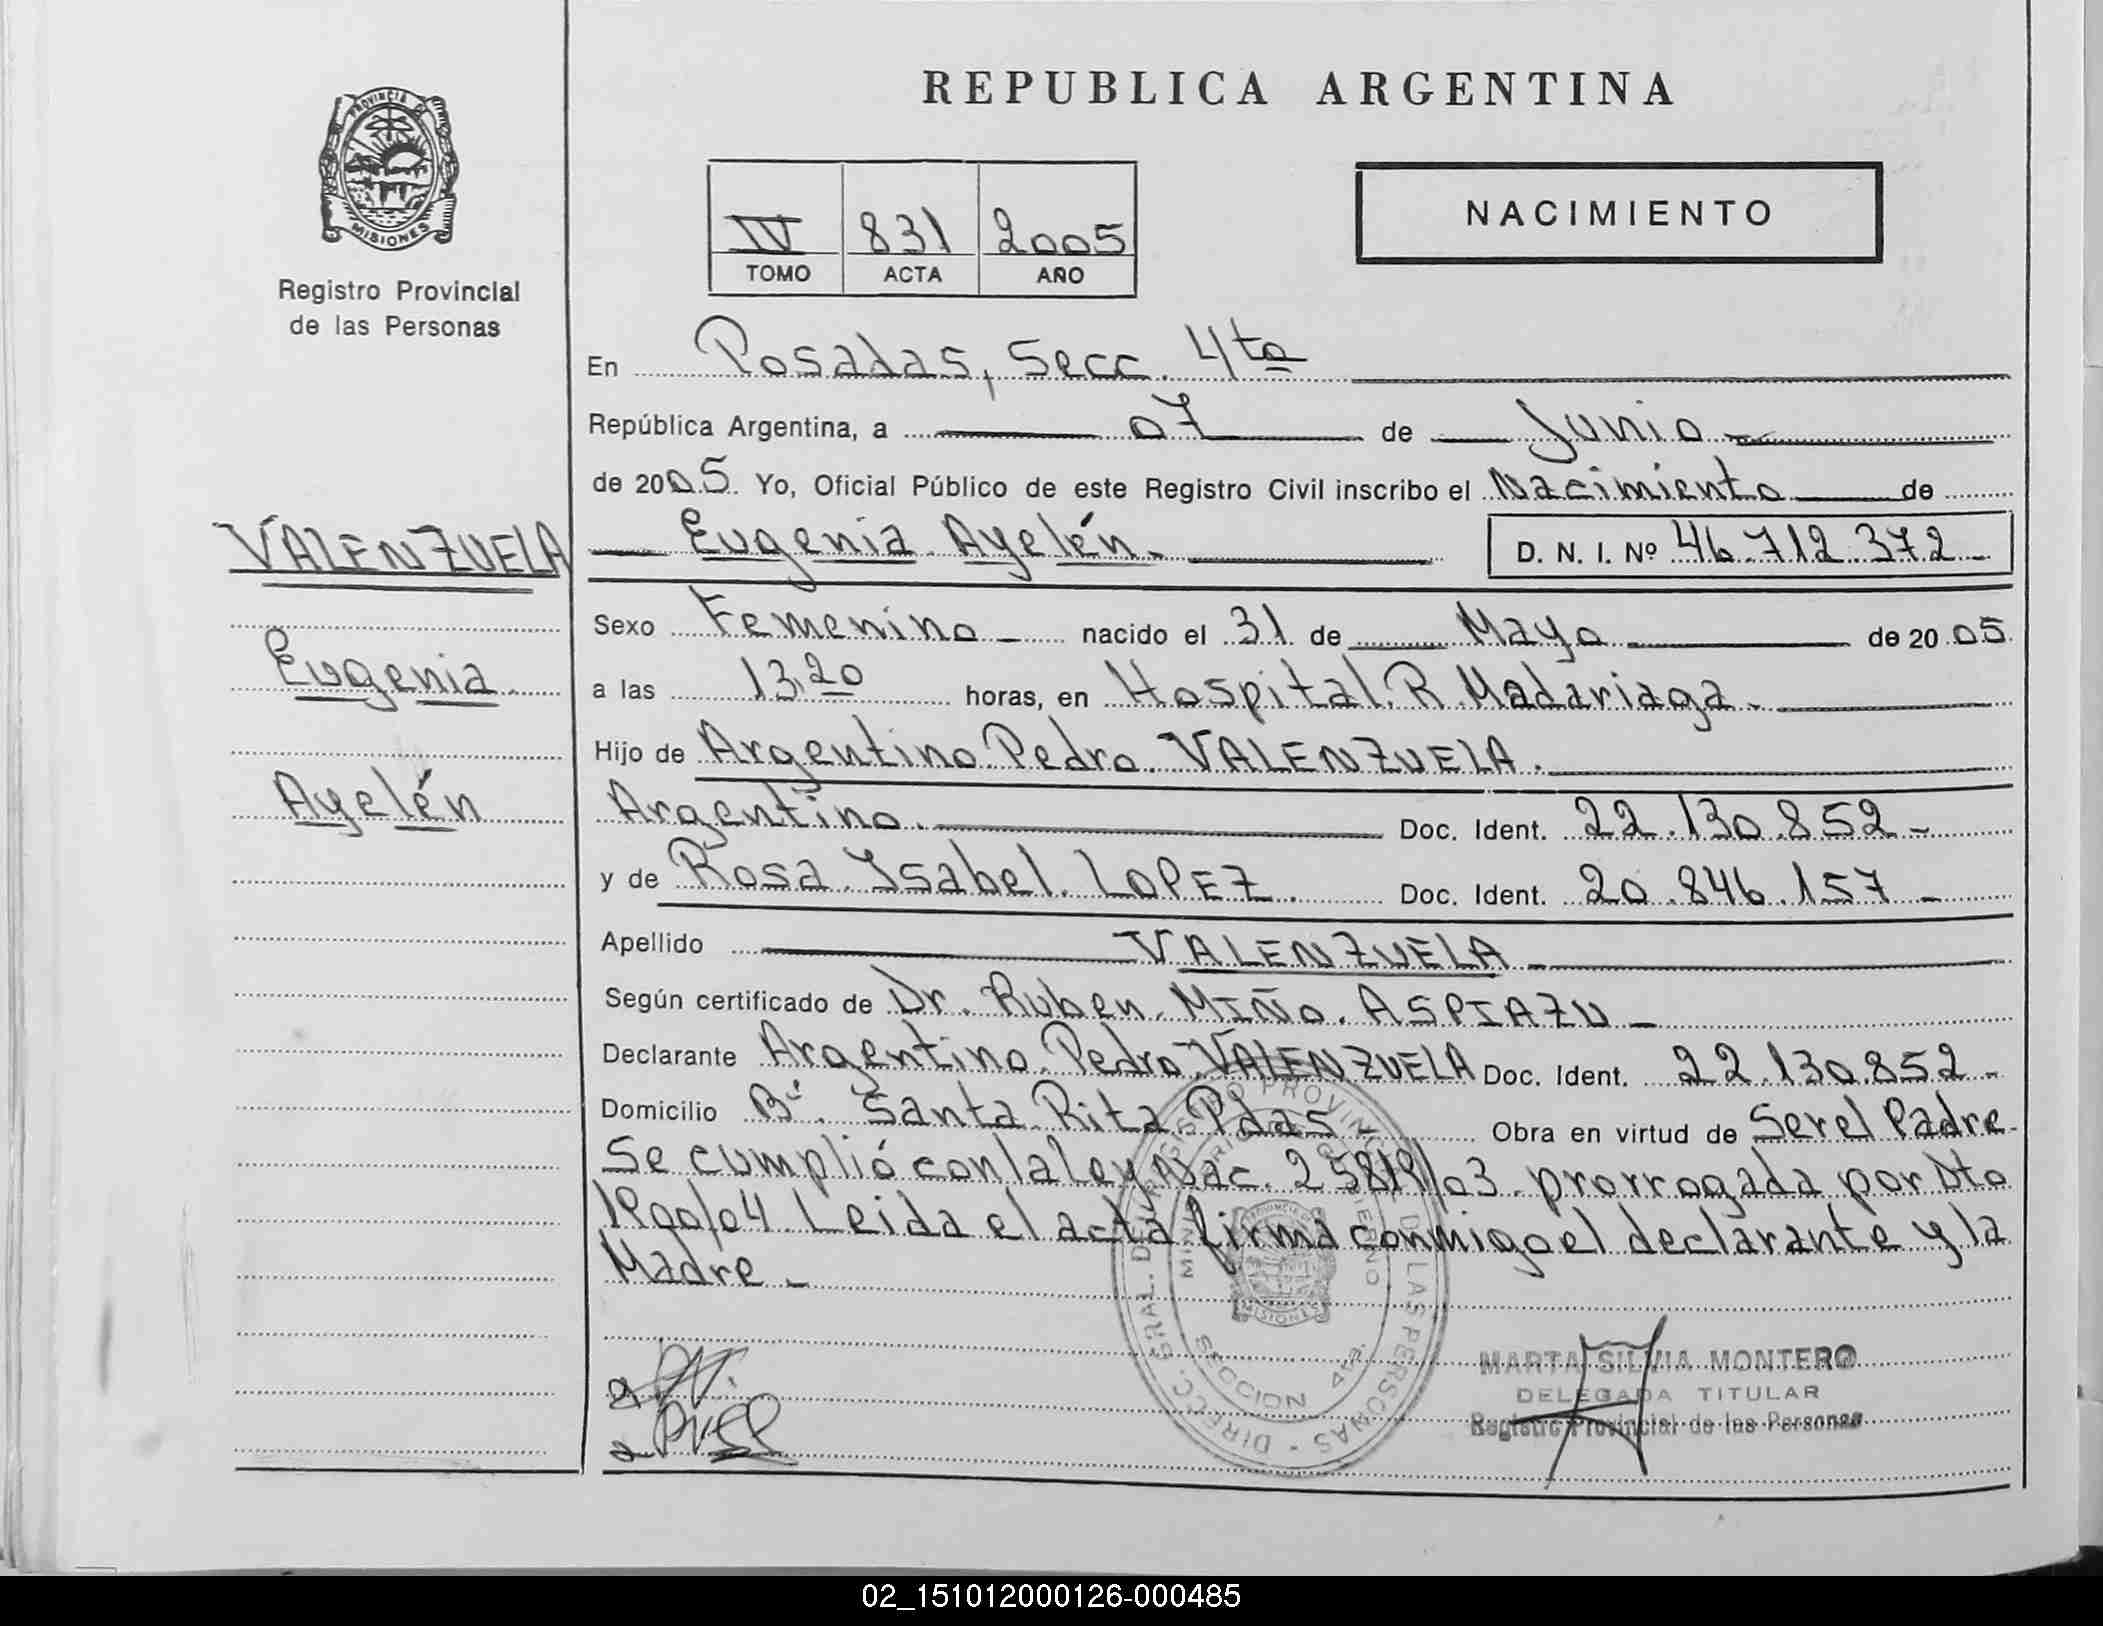 REPUBLICA ARGENTINA
PROVINCIA DE
MISIONES
Registro Provincial
de las Personas
IV 831 2005
TOMO ACTA AÑO
NACIMIENTO
En Posadas, Secc. 4ta
República Argentina, a 07 de Junio
de 2005. Yo, Oficial Público de este Registro Civil inscribo el Nacimiento de
Eugenia Ayelén. D. N. I. Nº 46.712.372
VALENZUELA
Eugenia
Ayelén
Sexo Femenino nacido el 31 de Mayo de 2005
a las 13,20 horas, en Hospital. R. Madariaga.
Hijo de Argentino Pedro VALENZUELA.
Argentino. Doc. Ident. 22.130.852
y de Rosa Ysabel LOPEZ. Doc. Ident. 20.846.157
Apellido VALENZUELA
Según certificado de Dr. Ruben MIÑO ASPIAZU
Declarante Argentino Pedro VALENZUELA Doc. Ident. 22.130.852
Domicilio Bº. Santa Rita Pdas Obra en virtud de Ser el Padre
Se cumplió con la ley Nac. 25819/03 prorrogada por Dto
1900/04 Leida el acta firma conmigo el declarante y la
Madre
DIRECC. GRAL. DEL REGISTRO PROVINCIAL DE LAS PERSONAS
SECCION 4ta.
MISIONES
MARTA SILVIA MONTERO
DELEGADA TITULAR
Registro Provincial de las Personas
02_151012000126-000485